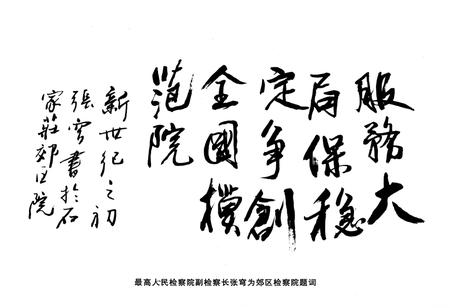 服務大
局保穩
定争創
全國模
范院
新世纪之初
張穹書於石
家莊郊区院
最高人民检察院副检察长张穹为郊区检察院题词